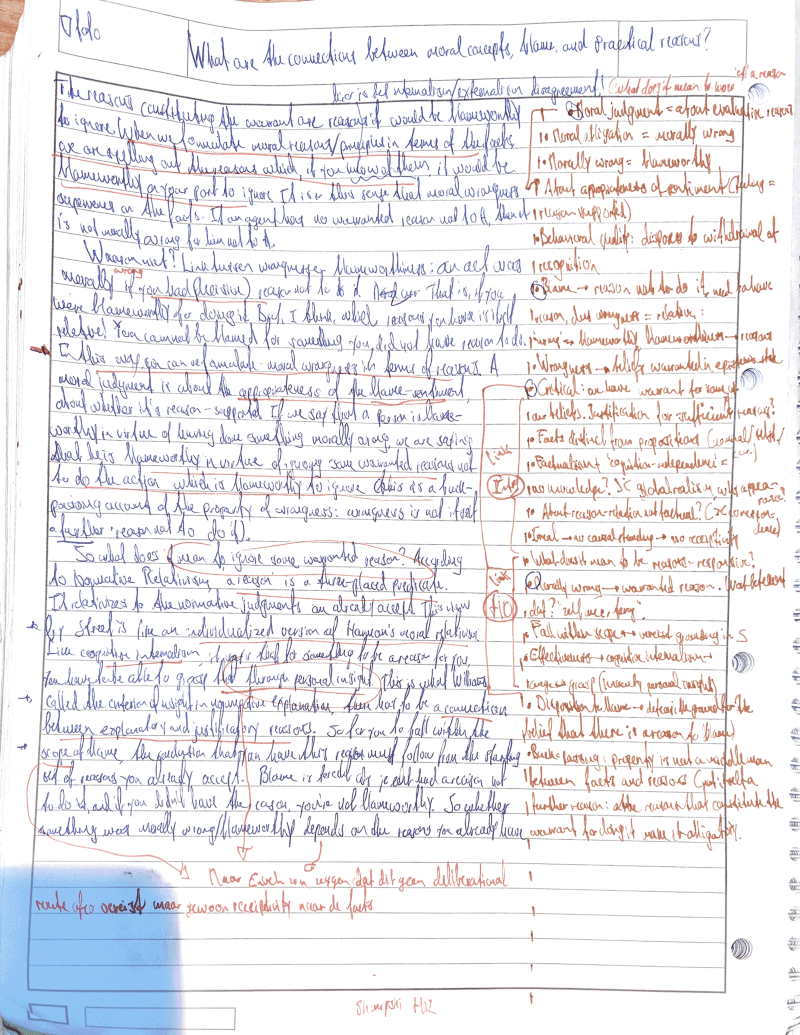 Todo
What are the connections between moral concepts, blame, and practical reasons?
internalism/externalism disagreement! (what does it mean to have a reason
The reasons constituting the warrant are reasons it would be blameworthy
to ignore. When we formulate moral reasons/principles in terms of the facts,
we are spelling out the reasons which, if you know of them, it would be
blameworthy on your part to ignore. It is in this sense that moral wrongness
supervenes on the facts. If an agent has no warranted reason not to A, then it
is not morally wrong for him not to A.
Warrant? Link between wrongness & blameworthiness: an act was
morally wrong if you had (decisive) reason not to do it. That is, if you
were blameworthy for doing it. But, I think, which reasons you have is itself
relative. You cannot be blamed for something you did not have reason to do.
In this way, you can reformulate moral wrongness in terms of reasons. A
moral judgment is about the appropriateness of the blame-sentiment,
about whether it's reason-supported. If we say that a person is blame-
worthy in virtue of having done something morally wrong, we are saying
that he is blameworthy in virtue of ignoring some warranted reasons not
to do the action which is blameworthy to ignore (this is a buck-
passing account of the property of wrongness: wrongness is not itself
a further reason not to do it).
So what does it mean to ignore some warranted reason? According
to Normative Relativism, a reason is a three-placed predicate.
It relativizes to the normative judgments an already accept. This view
by Street is like an individualized version of Harman's moral relativism.
Like cognitive internalism, it says that for something to be a reason for you,
you have to be able to grasp that through personal insight. This is what Williams
called the criterion of insight in explanation, there has to be a connection
between explanatory and justificatory reasons. So for you to fall within the
scope of blame, the conclusion that you have this reason must follow from the starting
set of reasons you already accept. Blame is forced if you had a reason not
to do it, and if you didn't have the reason, you're not blameworthy. So whether
something was morally wrong/blameworthy depends on the reasons you already have
Moral judgment = about evaluative reasons
Moral obligation = morally wrong
Morally wrong = blameworthy
About appropriateness of sentiment (feeling =
reason supported)
Behavioral quality: disposes to withdrawal of
recognition
Blame → reason not to do it, need to have
reason, does wrongness = relative.:
wrong → blameworthy blameworthiness → reasons
Wrongness → beliefs warranted in epistemic state
Critical: an have warrant for some of
our beliefs. Justification for = sufficient reasons?
Facts distinct from propositions
Factualism: cognition-independence =
no knowledge? Sc globalrealism
About reason-relation not factual?
no causal standing → no receptivity
What does it mean to be reasons-responsive?
Morally wrong → warranted reason.
Fall within scope → grounding in S
Effectiveness → cognitive internalism →
range → grasp (personal insight)
Disposition to blame → the ground for the
belief that there is a reason to (blame)
Buck-passing: property is not a middleman
between facts and reasons (not itself a
further reason: all the reasons that constitute the
warrant for doing it make it obligatory.
link
Int
link
Maar zeggen dat dit geen deliberational
route vereist maar gewoon receptivity naar de facts
Skorupski H12